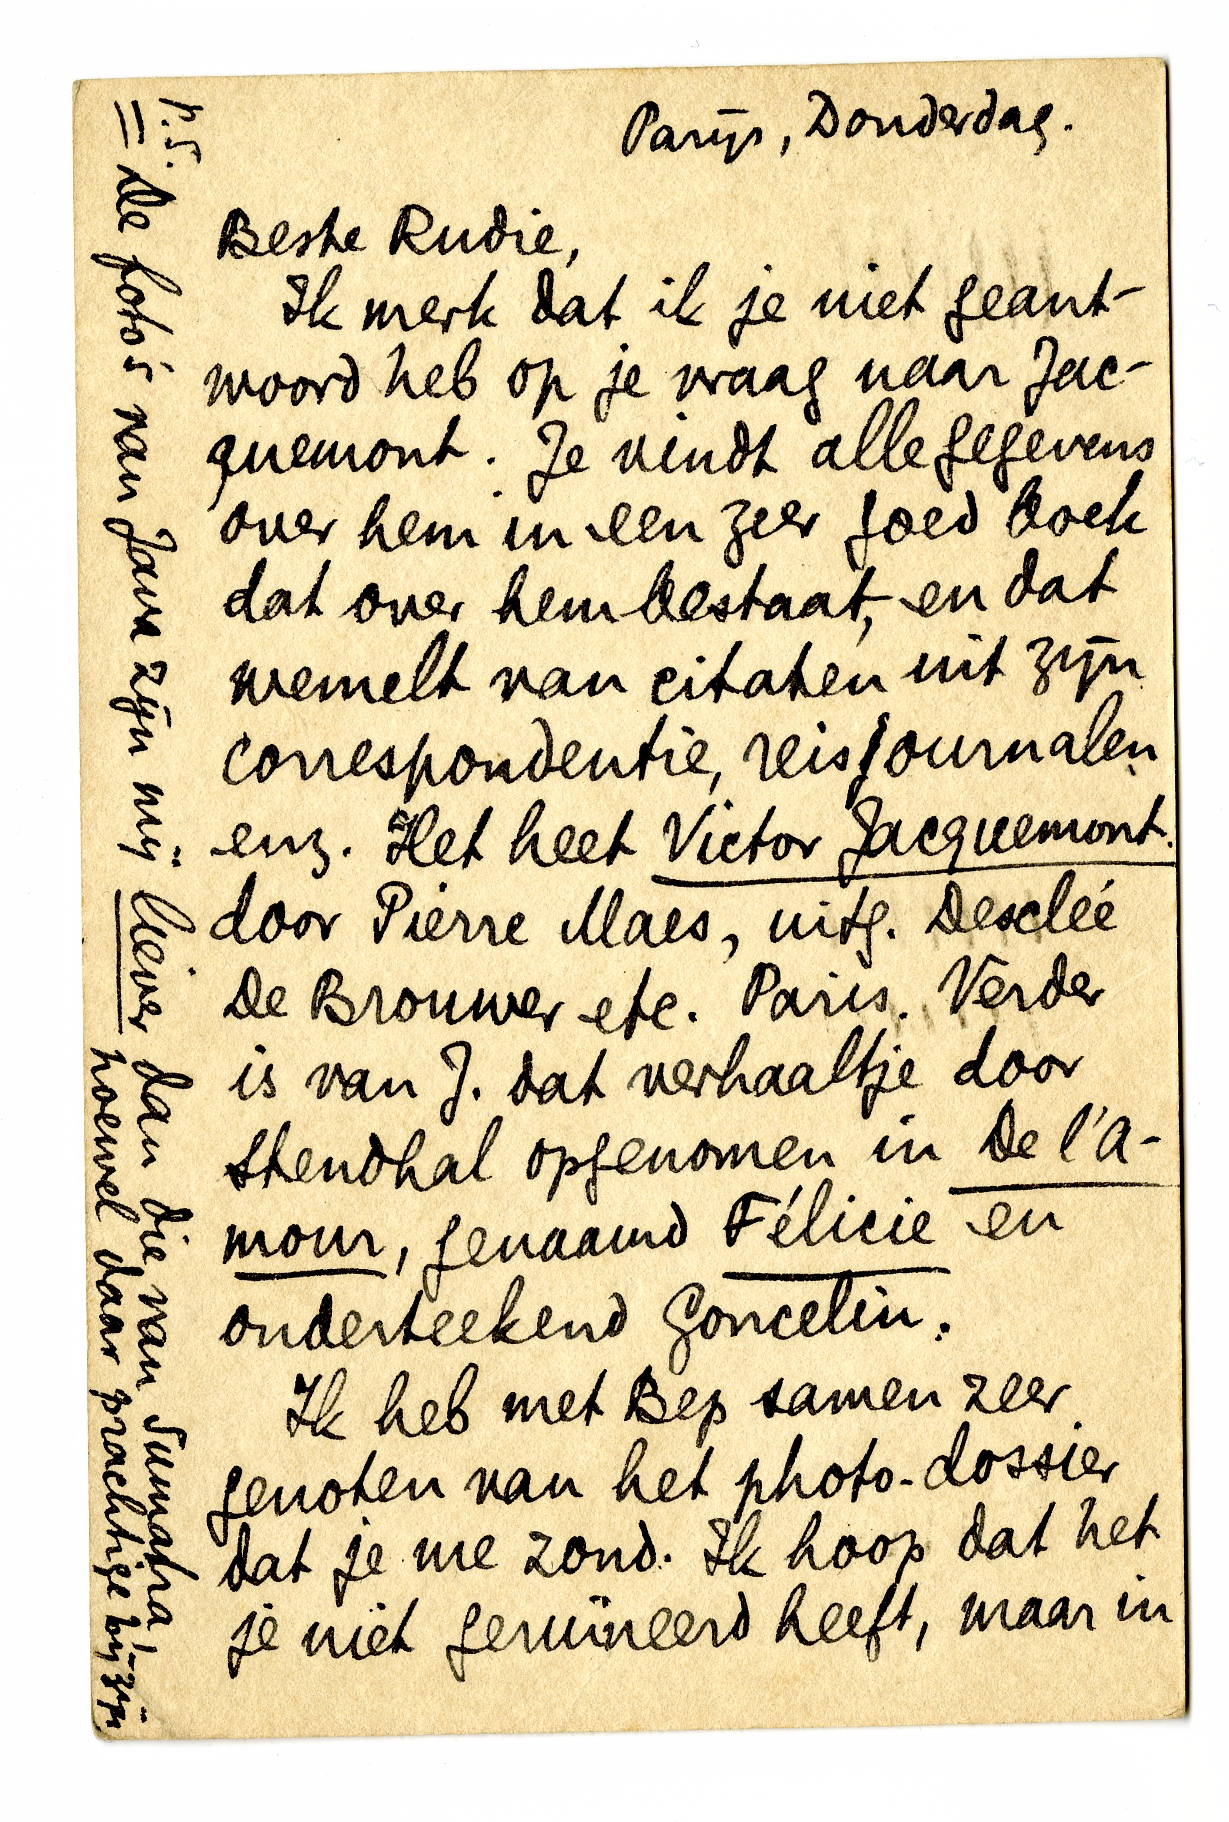 Parijs, Donderdag.
Beste Rudie,
Ik merk dat ik je niet geant-
woord heb op je vraag naar Jac-
quemont. Je vindt alle gegevens
over hem in een zeer goed boek
dat over hem bestaat, en dat
wemelt van citaten uit zijn
correspondentie, reisjournalen
enz. Het heet Victor Jacquemont.
door Pierre Maes, uitg. Desclée
De Brouwer etc. Paris. Verder
is van J. dat verhaaltje door
Stendhal opgenomen in De l'A-
mour, genaamd Félicie en
onderteekend Goncelin.
Ik heb met Bep samen zeer
genoten van het photo-dossier
dat je me zond. Ik hoop dat het
je niet geruïneerd heeft, maar in
P.S.
De foto's van Java zijn mij liever dan die van Sumatra,
hoewel daar prachtige bij zijn